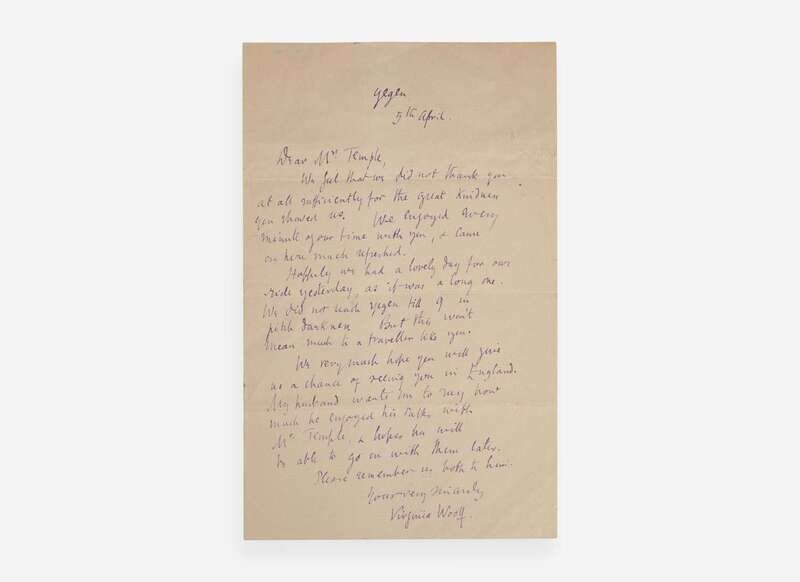 Yegen
5th April.
Dear Mrs Temple,
We feel that we did not thank you
at all sufficiently for the great kindness
you showed us. We enjoyed every
minute of our time with you, & came
on here much refreshed.
Happily we had a lovely day for our
ride yesterday, as it was a long one.
We did not reach Yegen till 9 in
pitch darkness. But this won't
mean much to a traveller like you.
We very much hope you will give
us a chance of seeing you in England.
My husband wants me to say how
much he enjoyed his talks with
Mr Temple, & hopes he will
be able to go on with them later.
Please remember us both to him.
Yours very sincerely
Virginia Woolf.